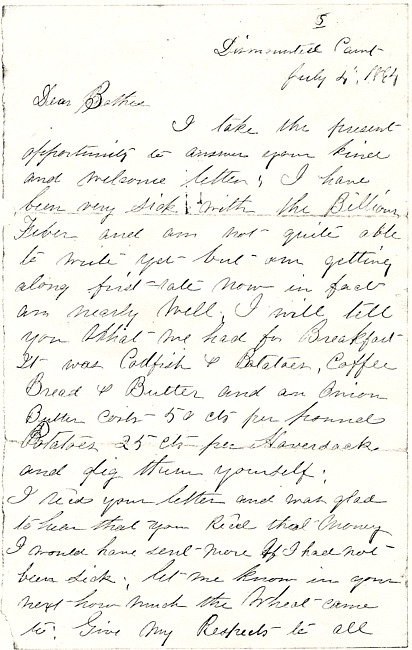 5
Dismounted Camp
July 4, 1864
Dear Bather
I take the present
opportunity to answer your kind
and welcome letter; I have
been very sick with the Billious
Fever and am not quite able
to write yet but am getting
along first-rate now in fact
am nearly well. I will tell
you what we had for Breakfast
It was Codfish & Potatoes, Coffee
Bread & Butter and an Onion
Butter costs 50 cts per pound
Potatoes 25 cts per Haversack
and dig them yourself;
I recd your letter and was glad
to hear that you Recd that money
I would have sent more If I had not
been sick; let me know in your
next how much the Wheat came
to; Give my Respects to all